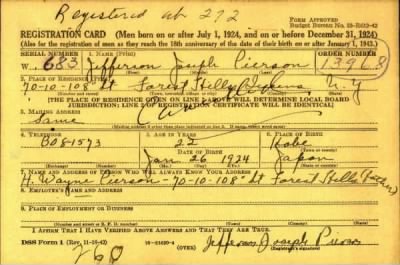 Registered at 272
Form Approved
Budget Bureau No.
REGISTRATION CARD (Men born on or after July 1, 1924, and on or before December 31, 1924)
(Also for the registration of men as they reach the 18th anniversary of the date of their birth on or after January 1, 1943.)
SERIAL NUMBER 1. NAME (Print) ORDER NUMBER
W 683 Jefferson Joseph Pierson 13968
2. PLACE OF RESIDENCE (Print)
70-10-108 St Forest Hills Queens N.Y.
[THE PLACE OF RESIDENCE GIVEN ON LINE 2 ABOVE WILL DETERMINE LOCAL BOARD
JURISDICTION; LINE 2 OF REGISTRATION CERTIFICATE WILL BE IDENTICAL]
3. MAILING ADDRESS
Same
4. TELEPHONE 5. AGE IN YEARS 6. PLACE OF BIRTH
BO81573 22 Kobe
DATE OF BIRTH
Jan 26 1924 Japan
7. NAME AND ADDRESS OF PERSON WHO WILL ALWAYS KNOW YOUR ADDRESS
H. Wayne Pierson - 70-10-108" St Forest Hills (Father)
8. EMPLOYER'S NAME AND ADDRESS
9. PLACE OF EMPLOYMENT OR BUSINESS
I AFFIRM THAT I HAVE VERIFIED ABOVE ANSWERS AND THAT THEY ARE TRUE.
DSS Form 1 (OVER) Jefferson Joseph Pierson